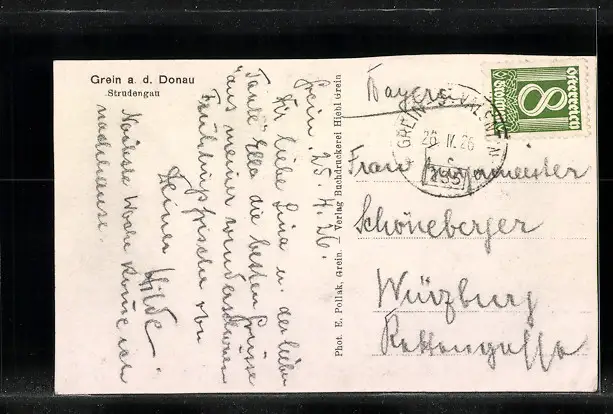 Grein a. d. Donau
Strudengau
Grein, 25. 4. 26.
Ihr liebe Lina u. der lieben
Tante Ella die besten Grüsse
aus meiner wunderschönen
Frühlingsfrische von
Deiner Hilde.
Nächste Woche komme ich
nachhause.
Phot. E. Pollak, Grein. — Verlag Buchdruckerei Hiebl Grein
Bayern
GREIN
26. IV. 26
8
Österreich
Frau Bürgermeister
Schöneberger
Würzburg